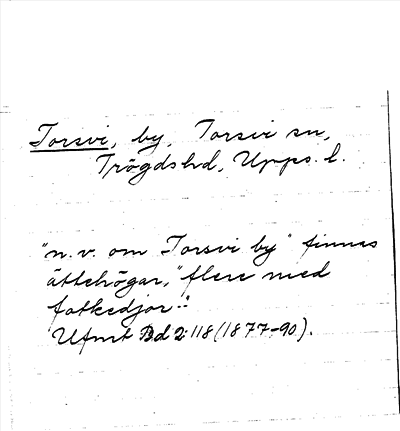 Torsvi, by, Torsvi sn,
Trögds hd, Upps. l.
"n. v. om Torsvi by" finnas
ättehögar, "flere med
fotkedjor".
Ufmt Bd 2:118 (1877-90).